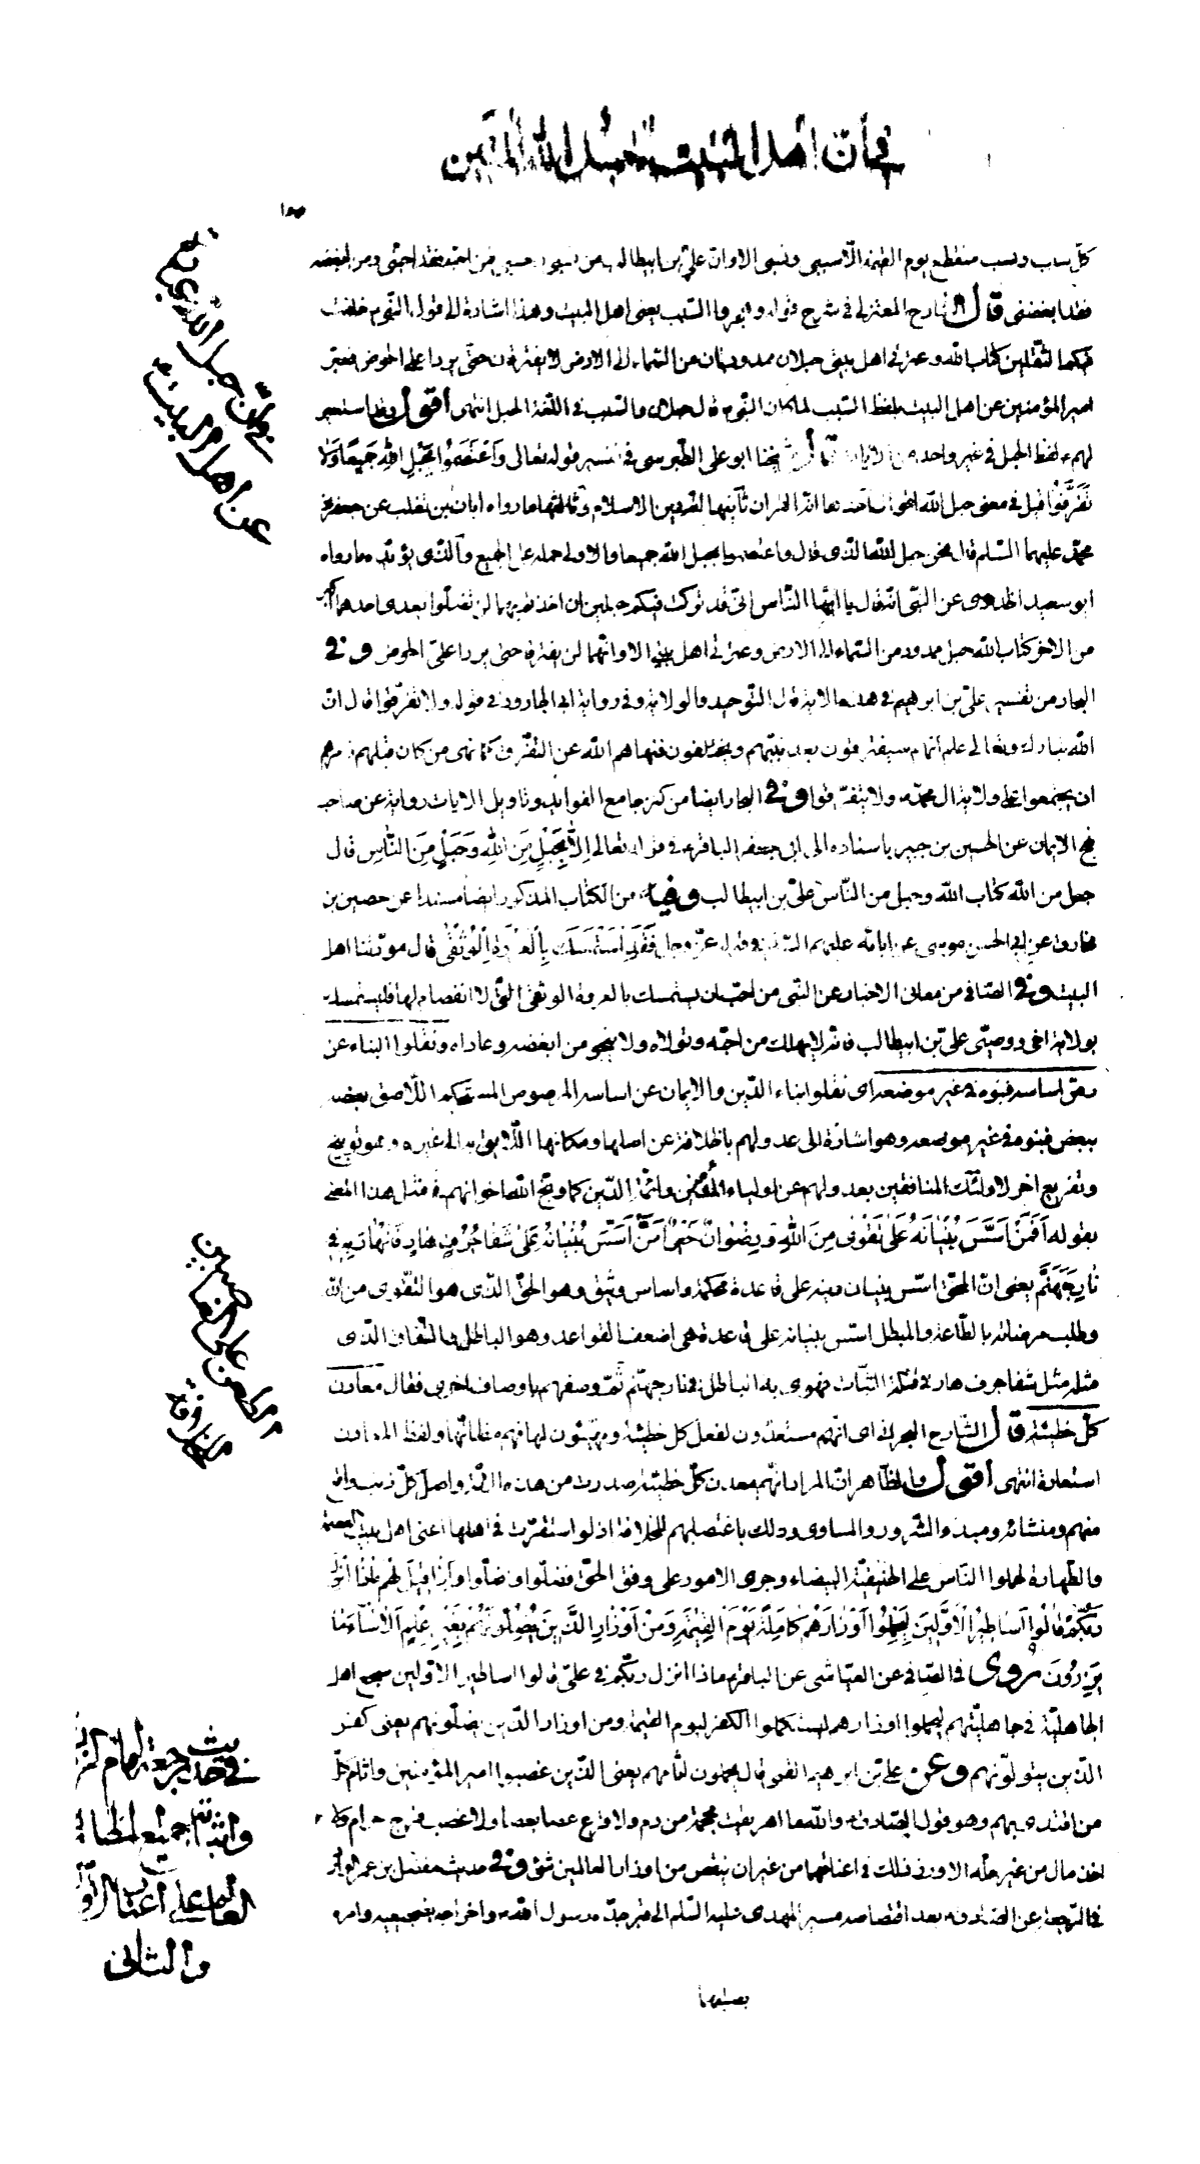 في أن اهل البيت حبل الله المتين
كلّ سبب ونسب منقطع يوم القيمة الّا سببي ونسبي الا وانّ عليّ بن ابيطالب من نسبي فمن احبّه فقد احبّني ومن ابغضه
فقد ابغضني قال الشارح المعتزلي في شرح قوله وهجروا السّبب يعني اهل البيت وهذا اشارة الى قول النّبي خلفت
فيكم الثّقلين كتاب الله وعترتي اهل بيتي حبلان ممدودان من السّماء الى الارض لا يفترقان حتّى يردا على الحوض فعبّر
امير المؤمنين عن اهل البيت بلفظ السّبب لما كان النّبي قال حبلان والسّبب في اللّغة الحبل انتهى أقول وقد استعير
لهم لفظ الحبل في غير واحد من الايات قال شيخنا ابو علي الطّبرسي في تفسير قوله تعالى وَاعْتَصِمُوا بِحَبْلِ اللهِ جَميعًا وَلا
تَفَرَّقُوا قيل في معنى حبل الله اقوال احدها انّه القران ثانيها انّه دين الاسلام وثالثها ما رواه ابان بن تغلب عن جعفر بن
محمّد عليهما السّلم قال نحن حبل الله الّذي قال واعتصموا بحبل الله جميعا والاولى حمله على الجميع والّذي يؤيّده ما رواه
ابو سعيد الخدري عن النّبي انّه قال يا ايّها النّاس انّي قد تركت فيكم حبلين ان اخذتم بهما لن تضلّوا بعدي احدهما اكبر
من الاخر كتاب الله حبل ممدود من السّماء الى الارض وعترتي اهل بيتي الا وانّهما لن يفترقا حتى يردا علىّ الحوض وفي
البحار من تفسير عليّ بن ابرهيم في هذه الاية قال التّوحيد والولاية وفي رواية ابي الجارود في قوله ولا تفرّقوا قال انّ
الله تبارك وتعالى علم انّهم سيفترقون بعد نبيّهم ويختلفون فنهاهم الله عن التّفرّق كما نهى من كان قبلهم فامرهم
ان يجتمعوا على ولاية ال محمّد ولا يتفرّقوا وفي البحار ايضا من كنز جامع الفوايد وتاويل الايات رواية عن صاحب
نهج الايمان عن الحسين بن جبير باسناده الى ابي جعفر الباقر في قوله تعالى اِلّا بِحَبْلٍ مِنَ اللهِ وَحَبْلٍ مِنَ النّاسِ قال
حبل من الله كتاب الله وحبل من النّاس عليّ بن ابيطالب وفيه من الكتاب المذكور ايضا مسندا عن حصين بن
مخارق عن ابي الحسن موسى عن ابائه عليهم السّلم في قوله عزّ وجل فَقَدِ اسْتَمْسَكَ بِالْعُرْوَةِ الْوُثْقى قال مودّتنا اهل
البيت وفي الصّافي من معاني الاخبار عن النّبي من احبّ ان يستمسك بالعروة الوثقى الّتي لا انفصام لها فليستمسك
بولاية اخي ووصيّي عليّ بن ابيطالب فانّه لا يهلك من احبّه وتولّاه ولا ينجو من ابغضه وعاداه ونقلوا البناء عن
رصّ اساسه فبنوه في غير موضعه اى نقلوا بناء الدّين والايمان عن اساسه المرصوص المستحكم اللّاصق بعضه
ببعض فبنوه في غير موضعه وهو اشارة الى عدولهم بالخلافة عن اصلها ومكانها اللّايق به الى غيره وهو توبيخ
وتقريع اخر لاولئك المنافقين بعدولهم عن اولياء المؤمنين وائمّة الدّين كما وبّخ الله اخوانهم في مثل هذا المعنى
بقوله اَفَمَنْ اَسَّسَ بُنْيانَهُ عَلى تَقْوى مِنَ اللهِ وَرِضْوانٍ خَيْرٌ اَمْ مَنْ اَسَّسَ بُنْيانَهُ عَلى شَفا جُرُفٍ هارٍ فَانْهارَ بِهِ في
نارِ جَهَنَّمَ يعني انّ المحقّ اسّس بنيان دينه على قاعدة محكمة واساس وثيق وهو الحقّ الذي هو التّقوى من الله
وطلب مرضاته بالطّاعة والمبطل اسّس بنيانه على قاعدة هي اضعف القواعد وهو الباطل والنّفاق الّذي
مثله مثل شفا جرف هار في قلّة الثّبات فهوى به الباطل في نار جهنّم ثمّ وصفهم باوصاف اخرى فقال معادن
كلّ خطيئة قال الشّارح البحراني اى انّهم مستعدّون لفعل كلّ خطيئة ومهيّئون لها فهم مظانّها ولفظ المعادن
استعارة انتهى أقول والظّاهر انّ المراد انّهم معدن كلّ خطيئة صدرت من هذه الامّة واصل كلّ ذنب واقع
منهم ومنشائه ومبدء الشّرور والمساوى وذلك باغتصابهم للخلافة اذ لو استقرّت في اهلها اعني اهل بيت العصمة
والطّهارة لحملوا النّاس على الحنيفيّة البيضاء وجرى الامور على وفق الحقّ فضلّوا واضلّوا وَاِذا قيلَ لَهُمْ ماذا اَنْزَلَ
رَبُّكُمْ قالُوا اَساطيرُ الْاَوَّلينَ لِيَحْمِلُوا اَوْزارَهُمْ كامِلَةً يَوْمَ الْقِيمَةِ وَمِنْ اَوْزارِ الَّذينَ يُضِلُّونَهُمْ بِغَيْرِ عِلْمٍ اَلا ساءَ ما
يَزِرُونَ روى في الصّافي عن العيّاشي عن الباقر ماذا انزل ربّكم في عليّ قالوا اساطير الاوّلين سجع اهل
الجاهليّة في جاهليّتهم ليحملوا اوزارهم ليستكملوا الكفر ليوم القيمة ومن اوزار الّذين يضلّونهم يعني كفر
الّذين يتولّونهم وعن عليّ بن ابرهيم القمّي قال يحملون اثامهم يعني الّذين غصبوا امير المؤمنين واثام كلّ
من اقتدى بهم وهو قول الصّادق والله ما اهريقت محجمة من دم ولا قرع عصا بعصا ولا غصب فرج حرام ولا
اخذ مال من غير حلّه الا وزر ذلك في اعناقهما من غير ان ينقص من اوزار العالمين شيء وفي حديث مفضّل بن عمر الوارد
في الرّجعة عن الصّادق بعد اقتصاصه مسير المهدي عليه السّلم الى قبر جدّه رسول الله واخراجه ضجيعيه وامره
بصلبهما
في أن حبل الله عبارة
عن اهل البيت
الطعن على الغاصبين
للخلافة
في حديث رجعة الامام
واثبات جميع
العالم على أعناق
والثاني